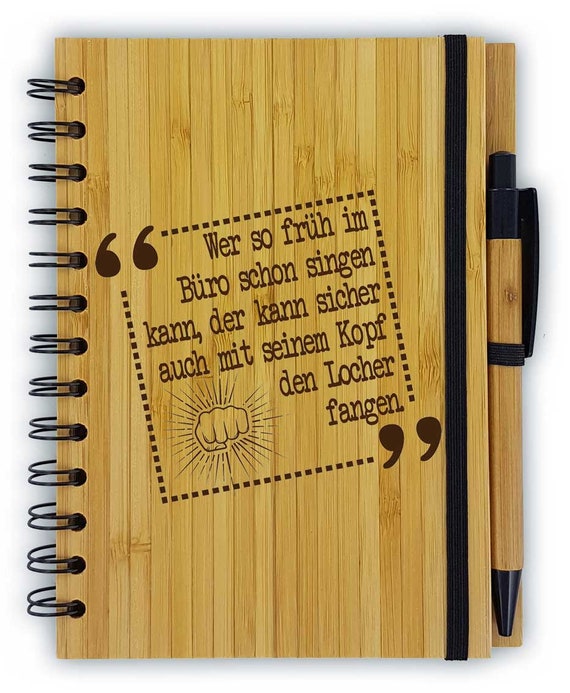 Wer so früh im
Büro schon singen
kann, der kann sicher
auch mit seinem Kopf
den Locher
fangen